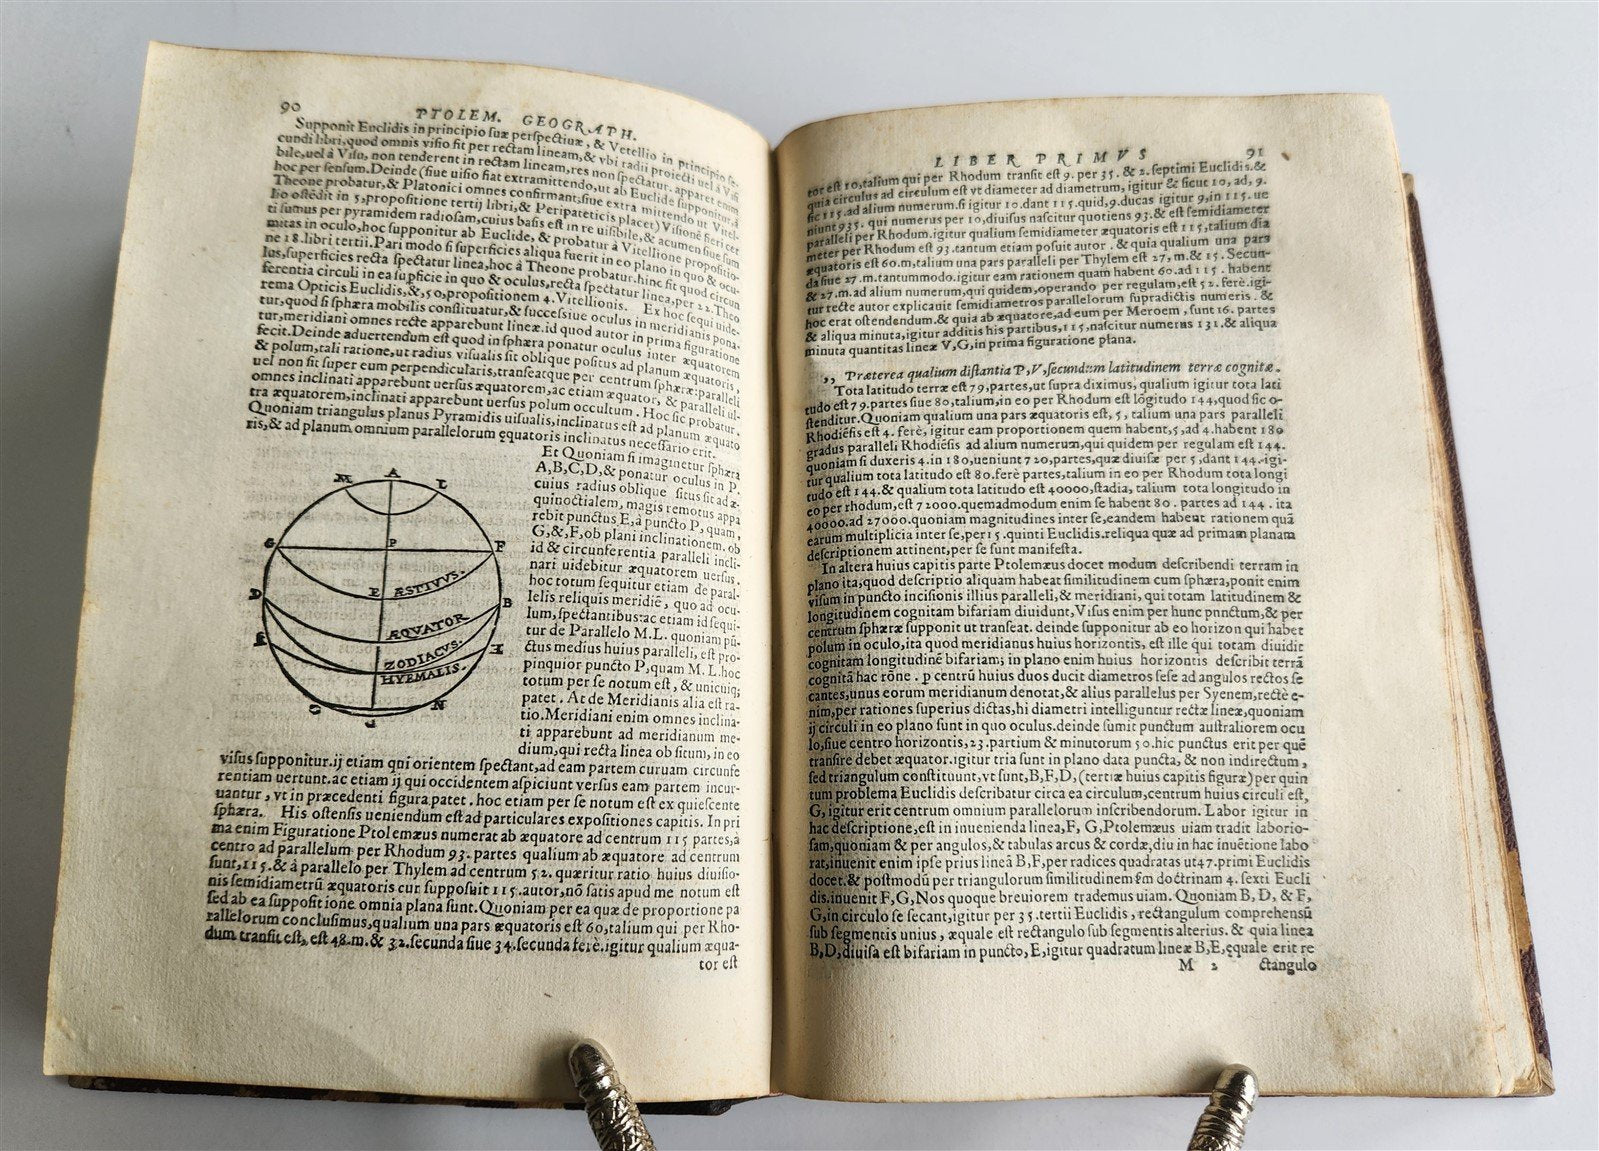 90
PTOLEM. GEOGRAPH.
Supponit Euclidis in principio suæ perspectiuæ, & Vetellio in principio se-
cundi libri, quod omnis visio fit per rectam lineam, & vbi radii proiecti uel à Visi
bile, uel à Visu, non tenderent in rectam lineam, res non spectatur. apparet enim
hoc per sensum. Deinde (siue uisio fiat extramittendo, ut ab Euclide supponitur, à
Theone probatur, & Platonici omnes confirmant, siue extra mittendo ut Vitel-
lio ostēdit in 5, propositione tertij libri, & Peripateticis placet) Visionē fieri cer
ti sumus per pyramidem radiosam, cuius basis est in re uisibile, & acumen siue sum
mitas in oculo, hoc supponitur ab Euclide, & probatur à Vitellione propositio-
ne 18. libri tertii. Pari modo si superficies aliqua fuerit in eo plano in quo & ocu-
lus, superficies recta spectatur linea, hoc à Theone probatur. hinc fit quod circum
ferentia circuli in ea supficie in quo & oculus, recta spectatur linea, per 22. Theo
rema Opticis Euclidis, &, 50, propositionem 4. Vitellionis. Ex hoc sequi uide-
tur, quod si sphæra mobilis constituatur, & successiue oculus in meridianis pona-
tur, meridiani omnes recte apparebunt lineæ. id quod autor in prima figuratione
fecit. Deinde aduertendum est quod in sphæra ponatur oculus inter æquatorem
& polum, tali ratione, ut radius visualis sit oblique positus ad planum æquatoris,
uel non sit super eum perpendicularis, transeatque per centrum sphæræ: paralleli
omnes inclinati apparebunt uersus æquatorem, ac etiam æquator, & paralleli ul-
tra æquatorem, inclinati apparebunt uersus polum occultum. Hoc sic probatur.
Quoniam triangulus planus Pyramidis uisualis, inclinatus est ad planum æquato
ris, & ad planum omnium parallelorum ęquatoris inclinatus necessario erit.
Et Quoniam si imaginetur sphæra
A, B, C, D, & ponatur oculus in P.
cuius radius oblique situs sit ad æ-
quinoctialem, magis remotus appa
rebit punctus E, à puncto P, quam,
G, &, F, ob plani inclinationem. ob
id & circunferentia paralleli incli-
nari uidebitur æquatorem uersus.
hoc totum sequitur etiam de paral-
lelis reliquis meridiē, quo ad ocu-
lum, spectantibus: ac etiam id sequi-
tur de Parallelo M. L. quoniam pū-
ctus medius huius paralleli, est pro-
pinquior puncto P, quam M. L. hoc
totum per se notum est, & unicuiq;
patet. At de Meridianis alia est ra-
tio. Meridiani enim omnes inclina-
ti apparebunt ad meridianum me-
dium, qui recta linea ob situm, in eo
M A L
G P F
E ÆSTIVVS.
D B
ÆQVATOR
ZODIACVS.
HYEMALIS.
N
visus supponitur. ij etiam qui orientem spectant, ad eam partem curuam circunfe
rentiam uertunt. ac etiam ij qui occidentem aspiciunt versus eam partem incur-
uantur, vt in præcedenti figura patet. hoc etiam per se notum est ex quiescente
sphæra. His ostensis ueniendum est ad particulares expositiones capitis. In pri
ma enim Figuratione Ptolemæus numerat ab æquatore ad centrum 115 partes, à
centro ad parallelum per Rhodum 93. partes qualium ab æquatore ad centrum
sunt, 115. & à parallelo per Thylem ad centrum 52. quæritur ratio huius diuisio-
nis semidiametrū æquatoris cur supposuit 115. autor, nō satis apud me notum est
sed ab ea suppositione omnia plana sunt. Quoniam per ea quæ de proportione pa
rallelorum conclusimus, qualium una pars æquatoris est 60, talium qui per Rho-
dum transit est, est 48. m. & 32. secunda siue 34. secunda ferè. igitur qualium æqua-
tor est
LIBER PRIMVS
91
tor est 10, talium qui per Rhodum transit est 9. per 35. & 2. septimi Euclidis. &
quia circulus ad circulum est vt diameter ad diametrum, igitur & sicut 10, ad, 9.
sic 115. ad alium numerum. si igitur 10. dant 115. quid, 9. ducas igitur 9, in 115. ue
niunt 935. qui numerus per 10, diuisus nascitur quotiens 93. & est semidiameter
paralleli per Rhodum. igitur qualium semidiameter æquatoris est 115, talium dia
meter per Rhodum est 93. tantum etiam posuit autor. & quia qualium una pars
æquatoris est 60. m, talium una pars paralleli per Thylem est 27, m. & 15. Secun-
da siue 27. m. tantummodo. igitur eam rationem quam habent 60. ad 115. habent
& 27. m. ad alium numerum, qui quidem, operando per regulam, est 52. ferè. igi-
tur recte autor explicauit semidiametros parallelorum supradictis numeris. &
hoc erat ostendendum. & quia ab æquatore, ad eum per Meroem, sunt 16. partes
& aliqua minuta, igitur additis his partibus, 115, nascitur numerus 131. & aliqua
minuta quantitas lineæ V, G, in prima figuratione plana.
,, Præterea qualium distantia P, V, secundum latitudinem terræ cognitæ.
Tota latitudo terræ est 79, partes, ut supra diximus, qualium igitur tota lati
tudo est 79. partes siue 80, talium, in eo per Rhodum est lōgitudo 144, quod sic o-
stenditur. Quoniam qualium una pars æquatoris est, 5, talium una pars paralleli
Rhodiēsis est 4. ferè, igitur eam proportionem quem habent, 5, ad 4. habent 180
gradus paralleli Rhodiēsis ad alium numerum, qui quidem per regulam est 144.
quoniam si duxeris 4. in 180, ueniunt 720, partes, quæ diuisæ per 5, dant 144. igi-
tur qualium tota latitudo est 80. ferè partes, talium in eo per Rhodum tota longi
tudo est 144. & qualium tota latitudo est 40000, stadia, talium tota longitudo in
eo per rhodum, est 72000. quemadmodum enim se habent 80. partes ad 144. ita
40000. ad 27000. quoniam magnitudines inter se, eandem habent rationem quā
earum multiplicia inter se, per 15. quinti Euclidis. reliqua quæ ad primam planam
descriptionem attinent, per se sunt manifesta.
In altera huius capitis parte Ptolemæus docet modum describendi terram in
plano ita, quod descriptio aliquam habeat similitudinem cum sphæra, ponit enim
visum in puncto incisionis illius paralleli, & meridiani, qui totam latitudinem &
longitudinem cognitam bifariam diuidunt, Visus enim per hunc punctum, & per
centrum sphæræ supponit ut transeat. deinde supponitur ab eo horizon qui habet
polum in oculo, ita quod meridianus huius horizontis, est ille qui totam diuidit
cognitam longitudinē bifariam; in plano enim huius horizontis describit terrā
cognitā hac rōne. p centrū huius duos ducit diametros sese ad angulos rectos se
cantes, unus eorum meridianum denotat, & alius parallelus per Syenem, rectè e-
nim, per rationes superius dictas, hi diametri intelliguntur rectæ lineæ, quoniam
ij circuli in eo plano sunt in quo oculus. deinde sumit punctum australiorem ocu
lo, siue centro horizontis, 23. partium & minutorum 50. hic punctus erit per quē
transire debet æquator. igitur tria sunt in plano data puncta, & non indirectum,
sed triangulum constituunt, vt sunt, B, F, D, (tertiæ huius capitis figuræ) per quin
tum problema Euclidis describatur circa ea circulum, centrum huius circuli est,
G, igitur erit centrum omnium parallelorum inscribendorum. Labor igitur in
hac descriptione, est in inuenienda linea, F, G, Ptolemæus uiam tradit laborio-
sam, quoniam & per angulos, & tabulas arcus & cordæ, diu in hac inuētione labo
rat, inuenit enim ipse prius lineā B, F, per radices quadratas ut 47. primi Euclidis
docet. & postmodū per triangulorum similitudinem fm doctrinam 4. sexti Eucli
dis. inuenit F, G, Nos quoque breuiorem trademus uiam. Quoniam B, D, & F,
G, in circulo se secant, igitur per 35. tertii Euclidis, rectangulum comprehensū
sub segmentis unius, æquale est rectangulo sub segmentis alterius. & quia linea
B, D, diuisa est bifariam in puncto, E, igitur quadratum lineæ B, E, ęquale erit re
M 2 ctangulo